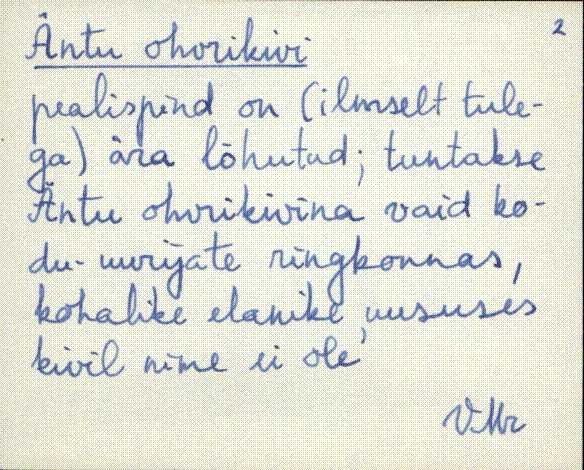 2
Äntu ohvrikivi
pealispind on (ilmselt tule-
ga) ära lõhutud; tuntakse
Äntu ohvrikivina vaid ko-
du-uurijate ringkonnas,
kohalike elanike uususes
kivil nime ei ole
VMr